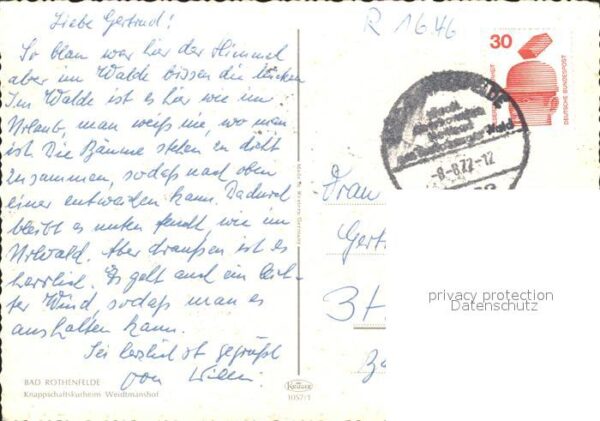 Liebe Gertrud!
So blau war hier der Himmel
aber im Walde bissen die
Im Walde ist es hier wie im
Urlaub, man weiß nie, wo man
ist. Die Bäume stehen so dicht
zusammen, sodaß nach oben
einer entweichen kann. Dadurch
bleibt es unten feucht, wie im
Urwald. Aber draußen ist es
herrlich. Es geht auch ein leich-
ter Wind, sodaß man es
aushalten kann.
Sei herzlichst gegrüßt
von Willi.
BAD ROTHENFELDE
Knappschaftskurheim Weidtmanshof
1057/1
R 1646
30
DEUTSCHE BUNDESPOST
-8-8.77-12
Frau
Gert
privacy protection
Datenschutz